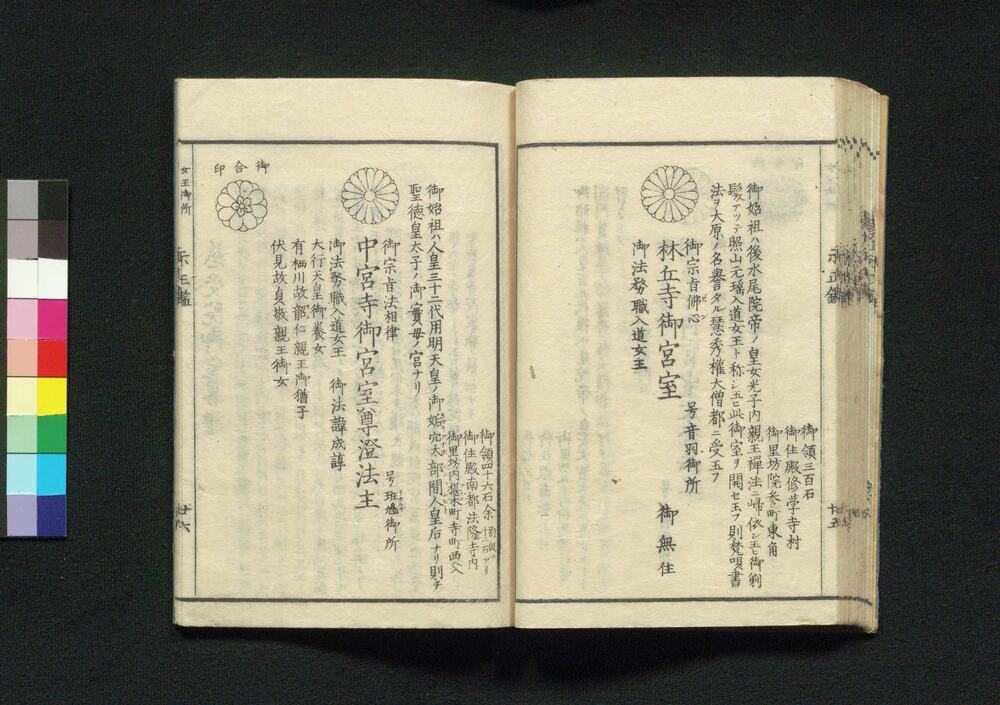 御領三百石
御住殿修学寺村
御里坊院参町東角
御始祖ハ後水尾院帝ノ皇女光子内親王禅法ニ帰依シ玉ヒ御剃
髪アツテ照山元瑶入道女王ト称シ玉ヒ此御室ヲ開セ玉フ則梵唄書
法ヲ大原ノ名誉タル慧秀権大僧都ニ受玉フ
御宗旨佛心
林丘寺御宮室 号音羽御所 御無住
御法務職入道女王
御領四十六石余
御住殿南都法隆寺内
御里坊内椹木町寺町西ヘ入
御始祖ハ人皇三十二代用明天皇ノ御妬穴太部間人皇后ナリ則チ
聖徳皇太子ノ御實母ノ宮ナリ
御宗旨法相律
中宮寺御宮室尊澄法主 号斑鳩御所
御法務職入道女王 御法諱成諄
大行天皇御養女
有栖川故韶仁親王御猶子
伏見故貞敬親王御女
御合印
女王御所
廿六